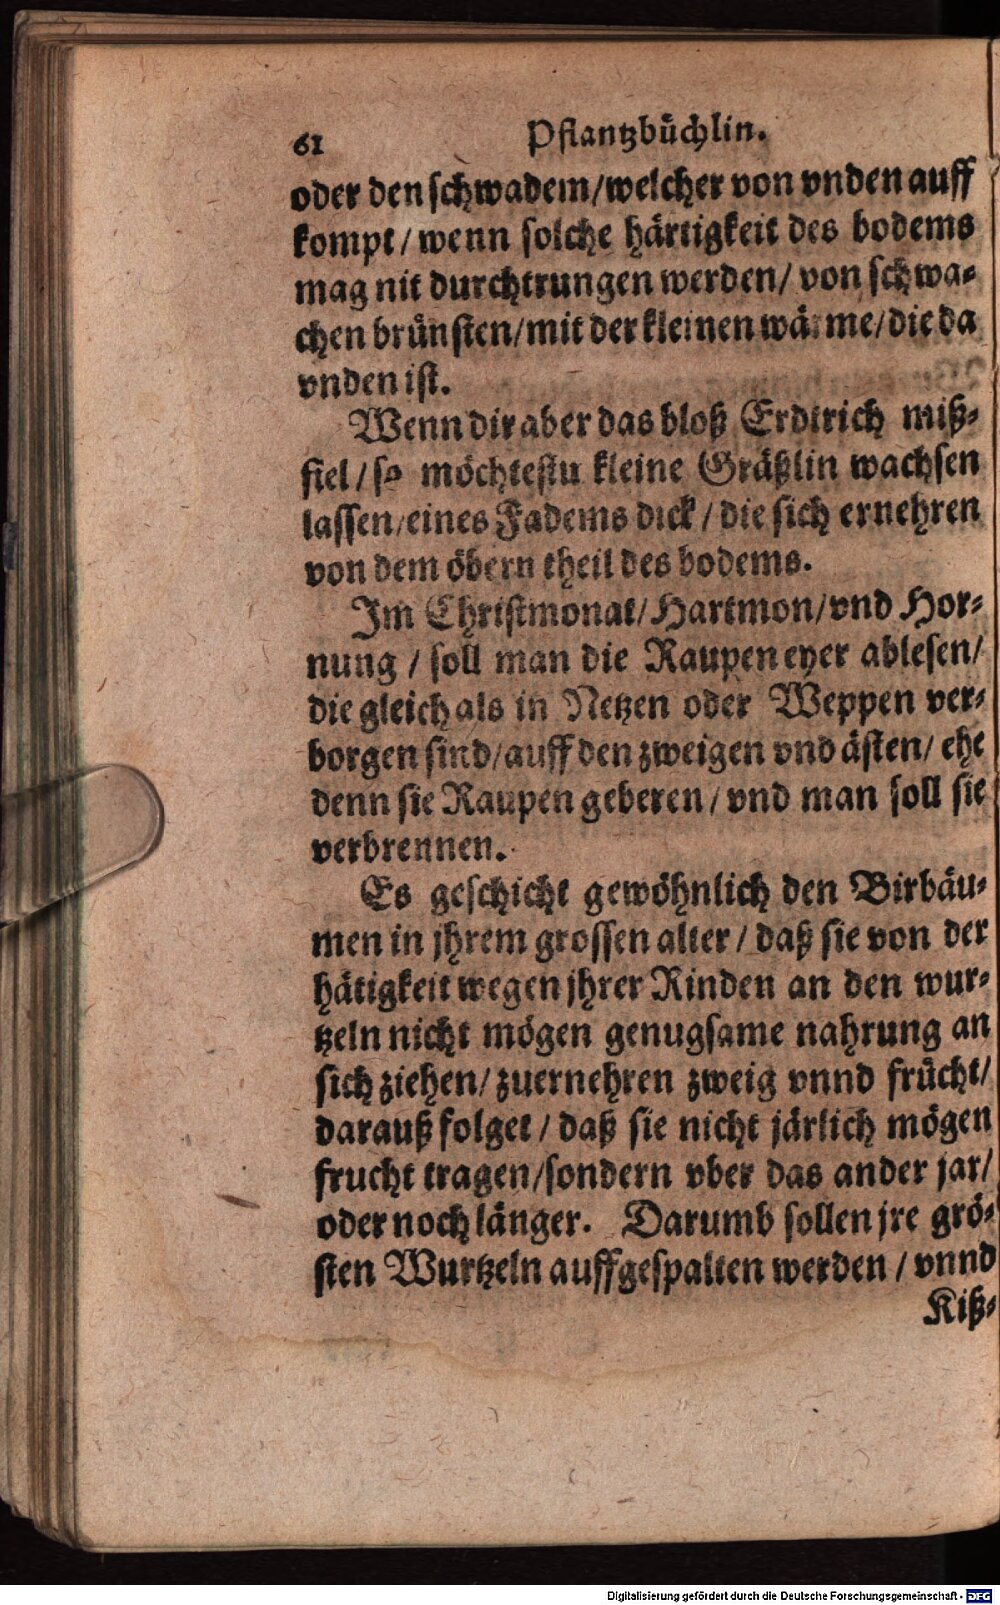 61 Pflantzbüchlin.
oder den schwadem/welcher von vnden auff
kompt/wenn solche härtigkeit des bodems
mag nit durchtrungen werden/ von schwa-
chen brünsten/mit der kleinen wärme/die da
vnden ist.
Wenn dir aber das bloß Erdtrich miß-
fiel/so möchtestu kleine Gräßlin wachsen
lassen/eines Fadems dick/die sich ernehren
von dem öbern theil des bodems.
Im Christmonat/Hartmon/vnd Hor-
nung / soll man die Raupeneyer ablesen/
die gleich als in Netzen oder Weppen ver-
borgen sind/auff den zweigen vnd ästen/ ehe
denn sie Raupen geberen/vnd man soll sie
verbrennen.
Es geschicht gewöhnlich den Birbäu-
men in jhrem grossen alter/daß sie von der
hätigkeit wegen jhrer Rinden an den wur-
tzeln nicht mögen genugsame nahrung an
sich ziehen/zuernehren zweig vnnd frücht/
darauß folget/daß sie nicht järlich mögen
frucht tragen/sondern vber das ander jar/
oder noch länger. Darumb sollen jre grö-
sten Wurtzeln auffgespalten werden/vnnd
Kiß-
Digitalisierung gefördert durch die Deutsche Forschungsgemeinschaft - DFG